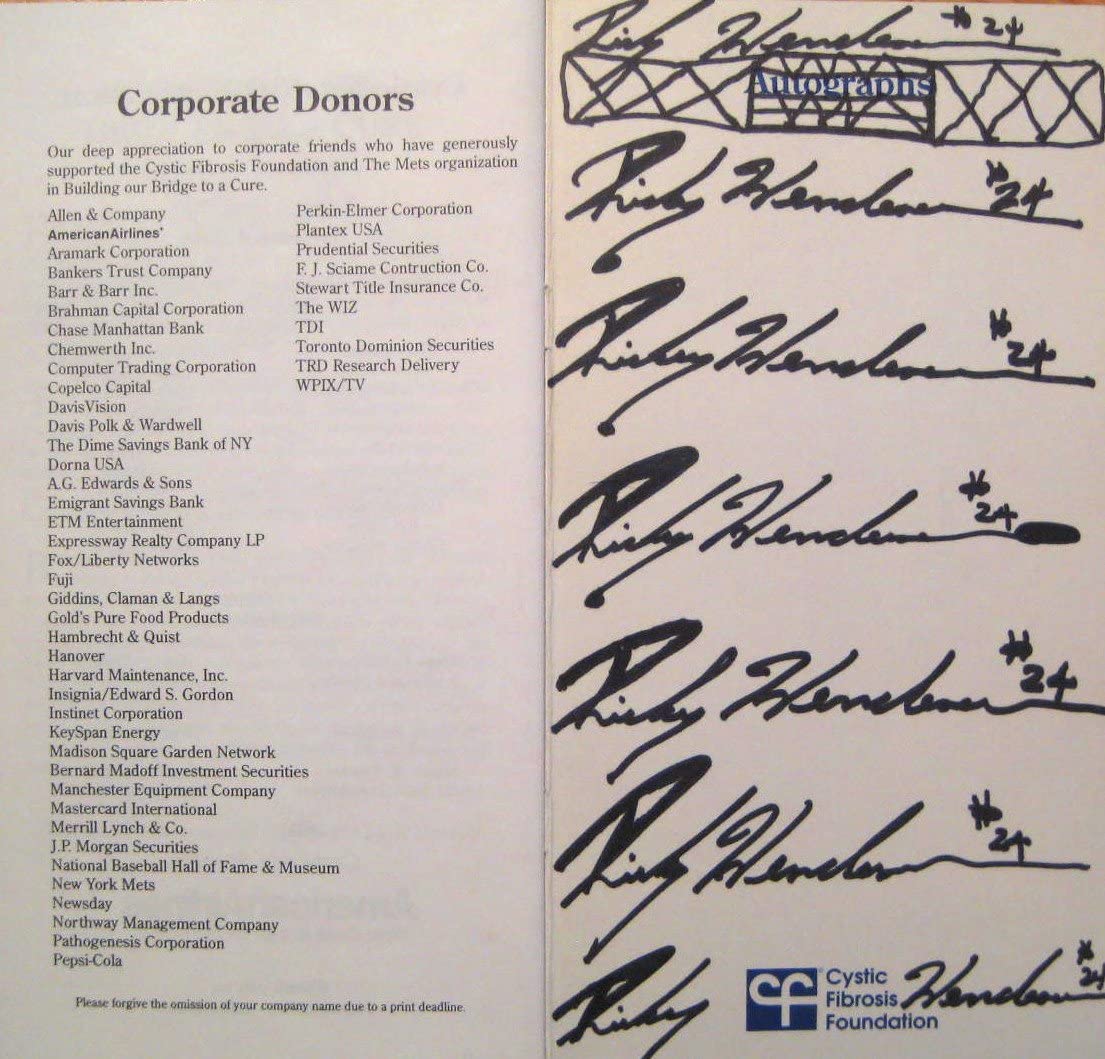 Corporate Donors
Our deep appreciation to corporate friends who have generously
supported the Cystic Fibrosis Foundation and The Mets organization
in Building our Bridge to a Cure.
Allen & Company
AmericanAirlines'
Aramark Corporation
Bankers Trust Company
Barr & Barr Inc.
Brahman Capital Corporation
Chase Manhattan Bank
Chemwerth Inc.
Computer Trading Corporation
Copelco Capital
DavisVision
Davis Polk & Wardwell
The Dime Savings Bank of NY
Dorna USA
A.G. Edwards & Sons
Emigrant Savings Bank
ETM Entertainment
Expressway Realty Company LP
Fox/Liberty Networks
Fuji
Giddins, Claman & Langs
Gold's Pure Food Products
Hambrecht & Quist
Hanover
Harvard Maintenance, Inc.
Insignia/Edward S. Gordon
Instinet Corporation
KeySpan Energy
Madison Square Garden Network
Bernard Madoff Investment Securities
Manchester Equipment Company
Mastercard International
Merrill Lynch & Co.
J.P. Morgan Securities
National Baseball Hall of Fame & Museum
New York Mets
Newsday
Northway Management Company
Pathogenesis Corporation
Pepsi-Cola
Perkin-Elmer Corporation
Plantex USA
Prudential Securities
F. J. Sciame Contruction Co.
Stewart Title Insurance Co.
The WIZ
TDI
Toronto Dominion Securities
TRD Research Delivery
WPIX/TV
Please forgive the omission of your company name due to a print deadline.
Ricky Henderson #24
Autographs
Ricky Henderson #24
Ricky Henderson #24
Ricky Henderson #24
Ricky Henderson #24
Ricky Henderson #24
Ricky Henderson #24
cf Cystic
Fibrosis
Foundation